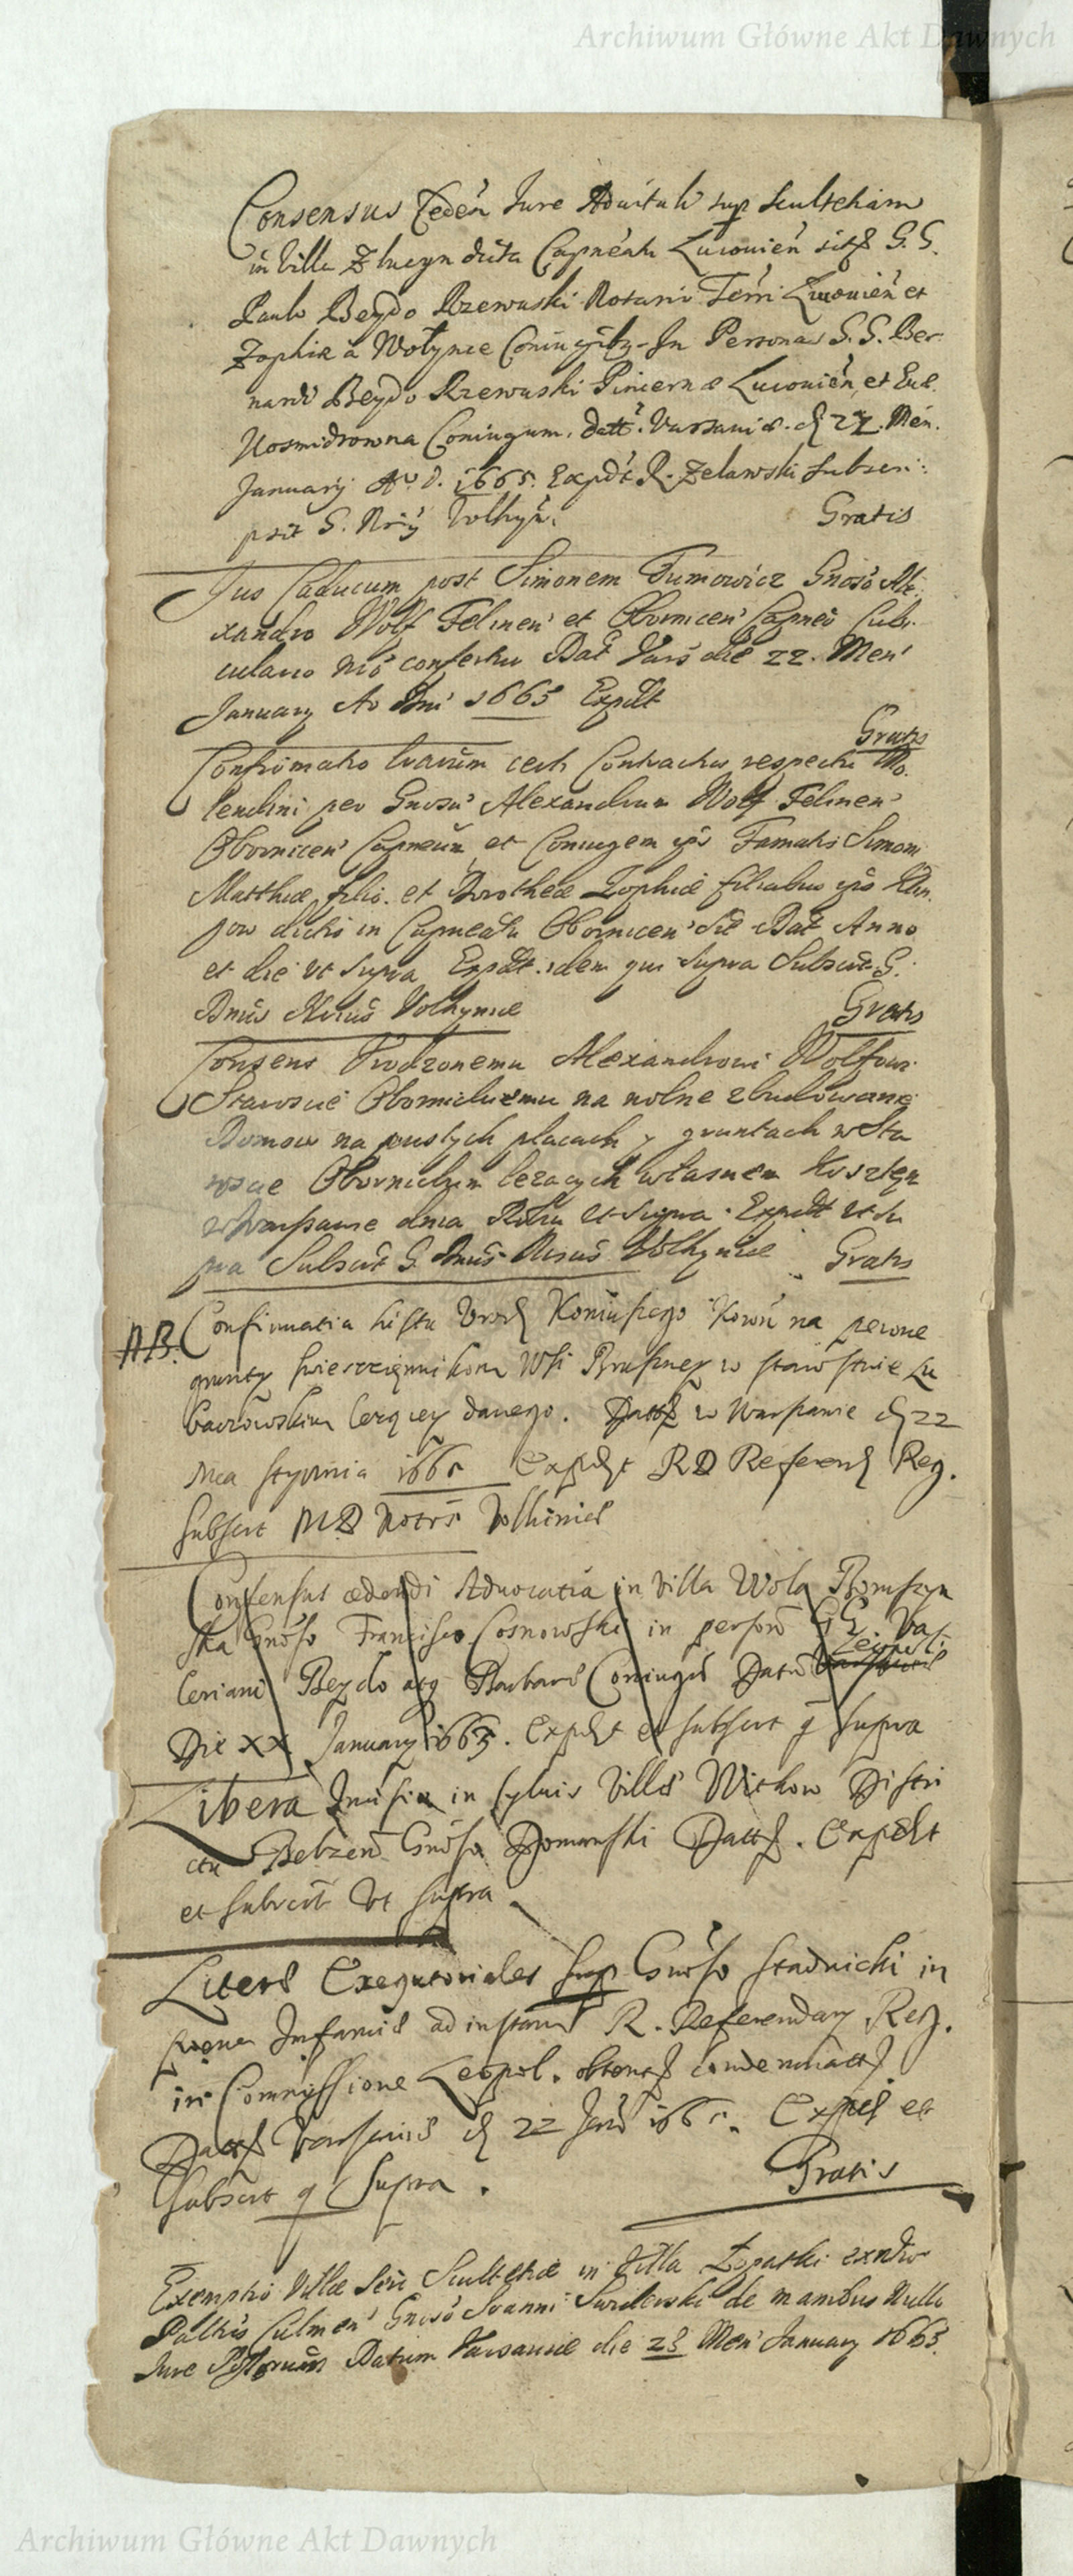 Archiwum Główne Akt Dawnych
Consensus Cedeń Iure Advitali sup Scultetiam
in Villa Zlucyn dicta Capneatu Lucovień sitt G. G.
Paulo Beydo Rzewuski Notario Terri Lucovień et
Zophiæ a Wotynce Coniugib In Personas G. G. Ber
nardi Beydo Rzewuski Pincernæ Lucovień, et Eue
Kosmidrowna Coniugum. Datt. Varsaviæ. d 22. Men.
January Ao D. 1665. Expdt R. Zelawski Subscri:
psit G. Nrij Volhyń. Gratis
Jus Caducum post Simonem Tumowicz Gnoso Ale
xandro Wolf Felinen et Obornicen Capneo Cubi
culario Nro confertur Dat Vars die 22. Men
January Ao Dni 1665 Expdt
Gratis
Confirmatio lrarum certi Contractus respectu Mo
lendini per Gnosu Alexandrum Wolf Felinen
Obornicen Capneum et Coniugem eius Famatis Simoni
Matthiæ filio. et Dorotheæ Zophiæ filiabus eius
pow dictis in Capneatu Obornicen Sit Dat Anno
et die ut supra Expdt idem qui supra Subscrit G.
Dnus Nrius Volhyniæ Gratis
Consens Urodzonemu Alexandrowi Wolfowi
Staroscie Obornickiemu na wolne zbudowanie
Domow na pustych placach y gruntach w Sta
rosc​ie Obornickim lezacych własnem kosztem
w Warszawie dnia Roku ut supra. Expdt ut su
pra Subscrit G. Dnus Nrius Volhyniæ Gratis
NB. Confirmatia listu Urodz Koniuszego Koron na pewne
grunty Wsi Bruszney w starostwie Lu
baczowskim lezącey danego. Datt w Warszawie d 22
Mca stycznia 1665 Expdt RD Referend Reg.
Subscrt MD Notrs Volhiniæ
Consensus cedendi Advocatia in Villa Wola Romszyn
ska Gnoso Francisco Cosnowski in person GG Va
Leopoli
leriani Beydo atq Barbaræ Coniugu Datu
Die XX January 1665. Expdt et subscrt q supra
Libera Inuisia in syluis Villæ Witkow Distri
ctu Belzen Gnoso Domanski Datt. Expdt
et subscrit Ut supra
Literæ Exequtoriales sup Gnoso Stadnicki in
poena Infamiæ ad instan R. Referendary Reg.
in Commissione Leopol. obtent condemnatt
Datt Varsaviæ d 22 Jan 1665. Expdt et
Subscrt q Supra. Gratis
Exemptio Villæ seu Scultetiæ in Villa Lopatki
Palttis Culmen Gnoso Ioanni Swilewski de manibus Nullo
Iure Datum Varsaviæ die 28 Men January 1665.
Archiwum Główne Akt Dawnych